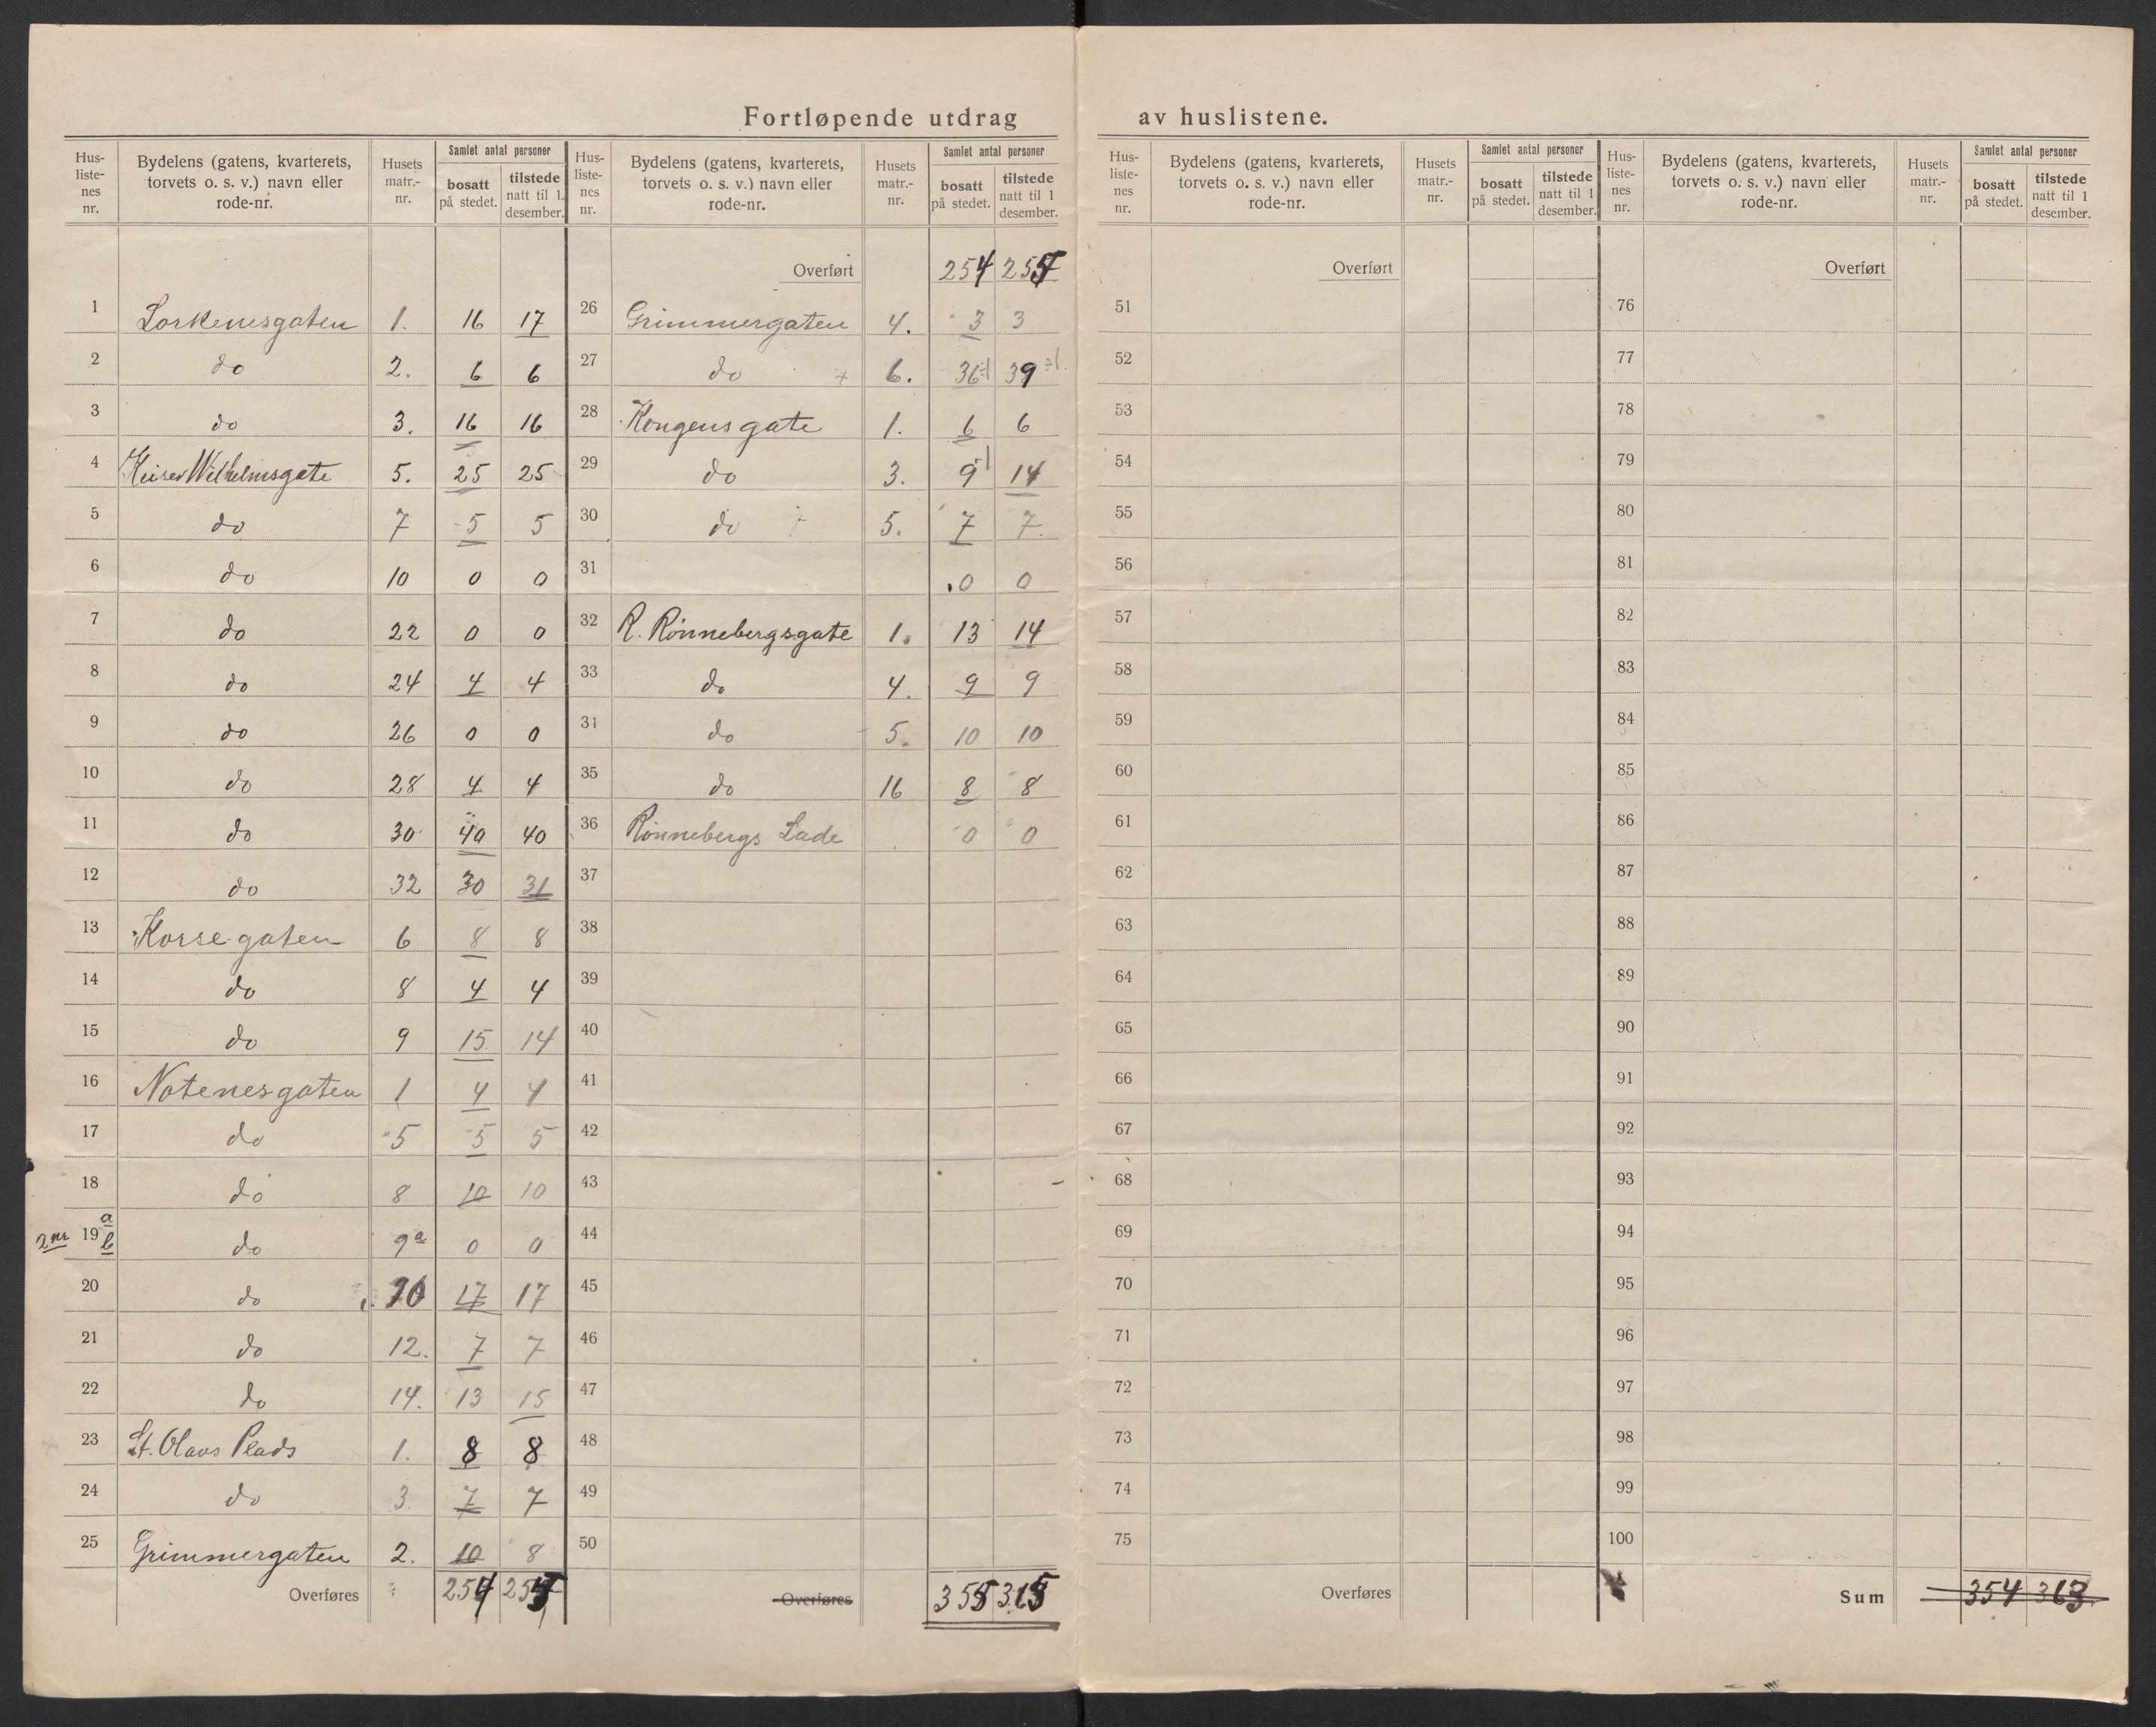 Fortløpende utdrag av huslistene.
Hus-liste-nes nr. | Bydelens (gatens, kvarterets, torvets o. s. v.) navn eller rode-nr. | Husets matr.-nr. | Samlet antal personer bosatt på stedet. | tilstede natt til 1. desember.
1 Lorkenesgaten 1. 16 17
2 do 2. 6 6
3 do 3. 16 16
4 Keiser Wilhelmsgate 5. 25 25
5 do 7 5 5
6 do 10 0 0
7 do 22 0 0
8 do 24 4 4
9 do 26 0 0
10 do 28 4 4
11 do 30 40 40
12 do 32 30 31
13 Korsegaten 6 8 8
14 do 8 4 4
15 do 9 15 14
16 Notenesgaten 1 4 4
17 do 5 5 5
18 do 8 10 10
2 nr 19 a b do 9a 0 0
20 do 10 17 17
21 do 12. 7 7
22 do 14. 13 15
23 St. Olavs Plads 1. 8 8
24 do 3. 7 7
25 Grimmergaten 2. 10 8
Overføres 254 255
Hus-liste-nes nr. | Bydelens (gatens, kvarterets, torvets o. s. v.) navn eller rode-nr. | Husets matr.-nr. | Samlet antal personer bosatt på stedet. | tilstede natt til 1 desember.
Overført 254 255
26 Grimmergaten 4. 3 3
27 do + 6. 36 39
28 Kongensgate 1. 6 6
29 do 3. 9 14
30 do 5. 7 7.
31 0 0
32 R. Rønnebergsgate 1. 13 14
33 do 4. 9 9
34 do 5. 10 10
35 do 16 8 8
36 Rønnebergs Lade 0 0
37
38
39
40
41
42
43
44
45
46
47
48
49
50
Overføres 355 365
Hus-liste-nes nr. | Bydelens (gatens, kvarterets, torvets o. s. v.) navn eller rode-nr. | Husets matr.-nr. | Samlet antal personer bosatt på stedet. | tilstede natt til 1 desember.
Overført
51
52
53
54
55
56
57
58
59
60
61
62
63
64
65
66
67
68
69
70
71
72
73
74
75
Overføres
Hus-liste-nes nr. | Bydelens (gatens, kvarterets, torvets o. s. v.) navn eller rode-nr. | Husets matr.-nr. | Samlet antal personer bosatt på stedet. | tilstede natt til 1 desember.
Overført
76
77
78
79
80
81
82
83
84
85
86
87
88
89
90
91
92
93
94
95
96
97
98
99
100
Sum 354 363